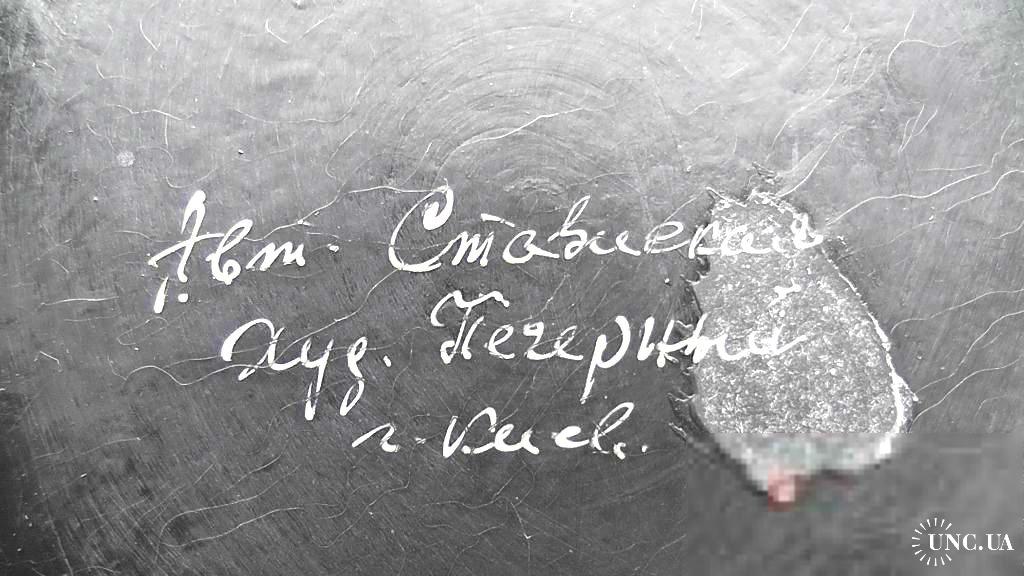 Авт. Ставиский
Худ. Печерный
г. Киев.
UNC.UA